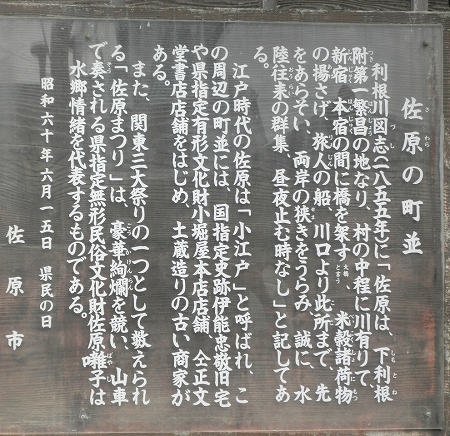 佐原の町並
利根川図志(一八五五年)に「佐原は、下利根
附第一繁昌の地なり、村の中程に川有りて、
新宿、本宿の間に橋を架す大橋と言う 米穀諸荷物
の揚さげ、旅人の船、川口より此所まで、先
をあらそい、両岸の狭きをうらみ、誠に、水
陸往来の群集、昼夜止む時なし」と記してあ
る。
江戸時代の佐原は「小江戸」と呼ばれ、こ
の周辺の町並には、国指定史跡伊能忠敬旧宅
や県指定有形文化財小堀屋本店店舗、仝正文
堂書店店舗をはじめ、土蔵造りの古い商家が
ある。
また、関東三大祭りの一つとして数えられ
る「佐原まつり」は、豪華絢爛を競い、山車
で奏される県指定無形民俗文化財佐原囃子は
水郷情緒を代表するものである。
昭和六十年六月一五日 県民の日
佐原市